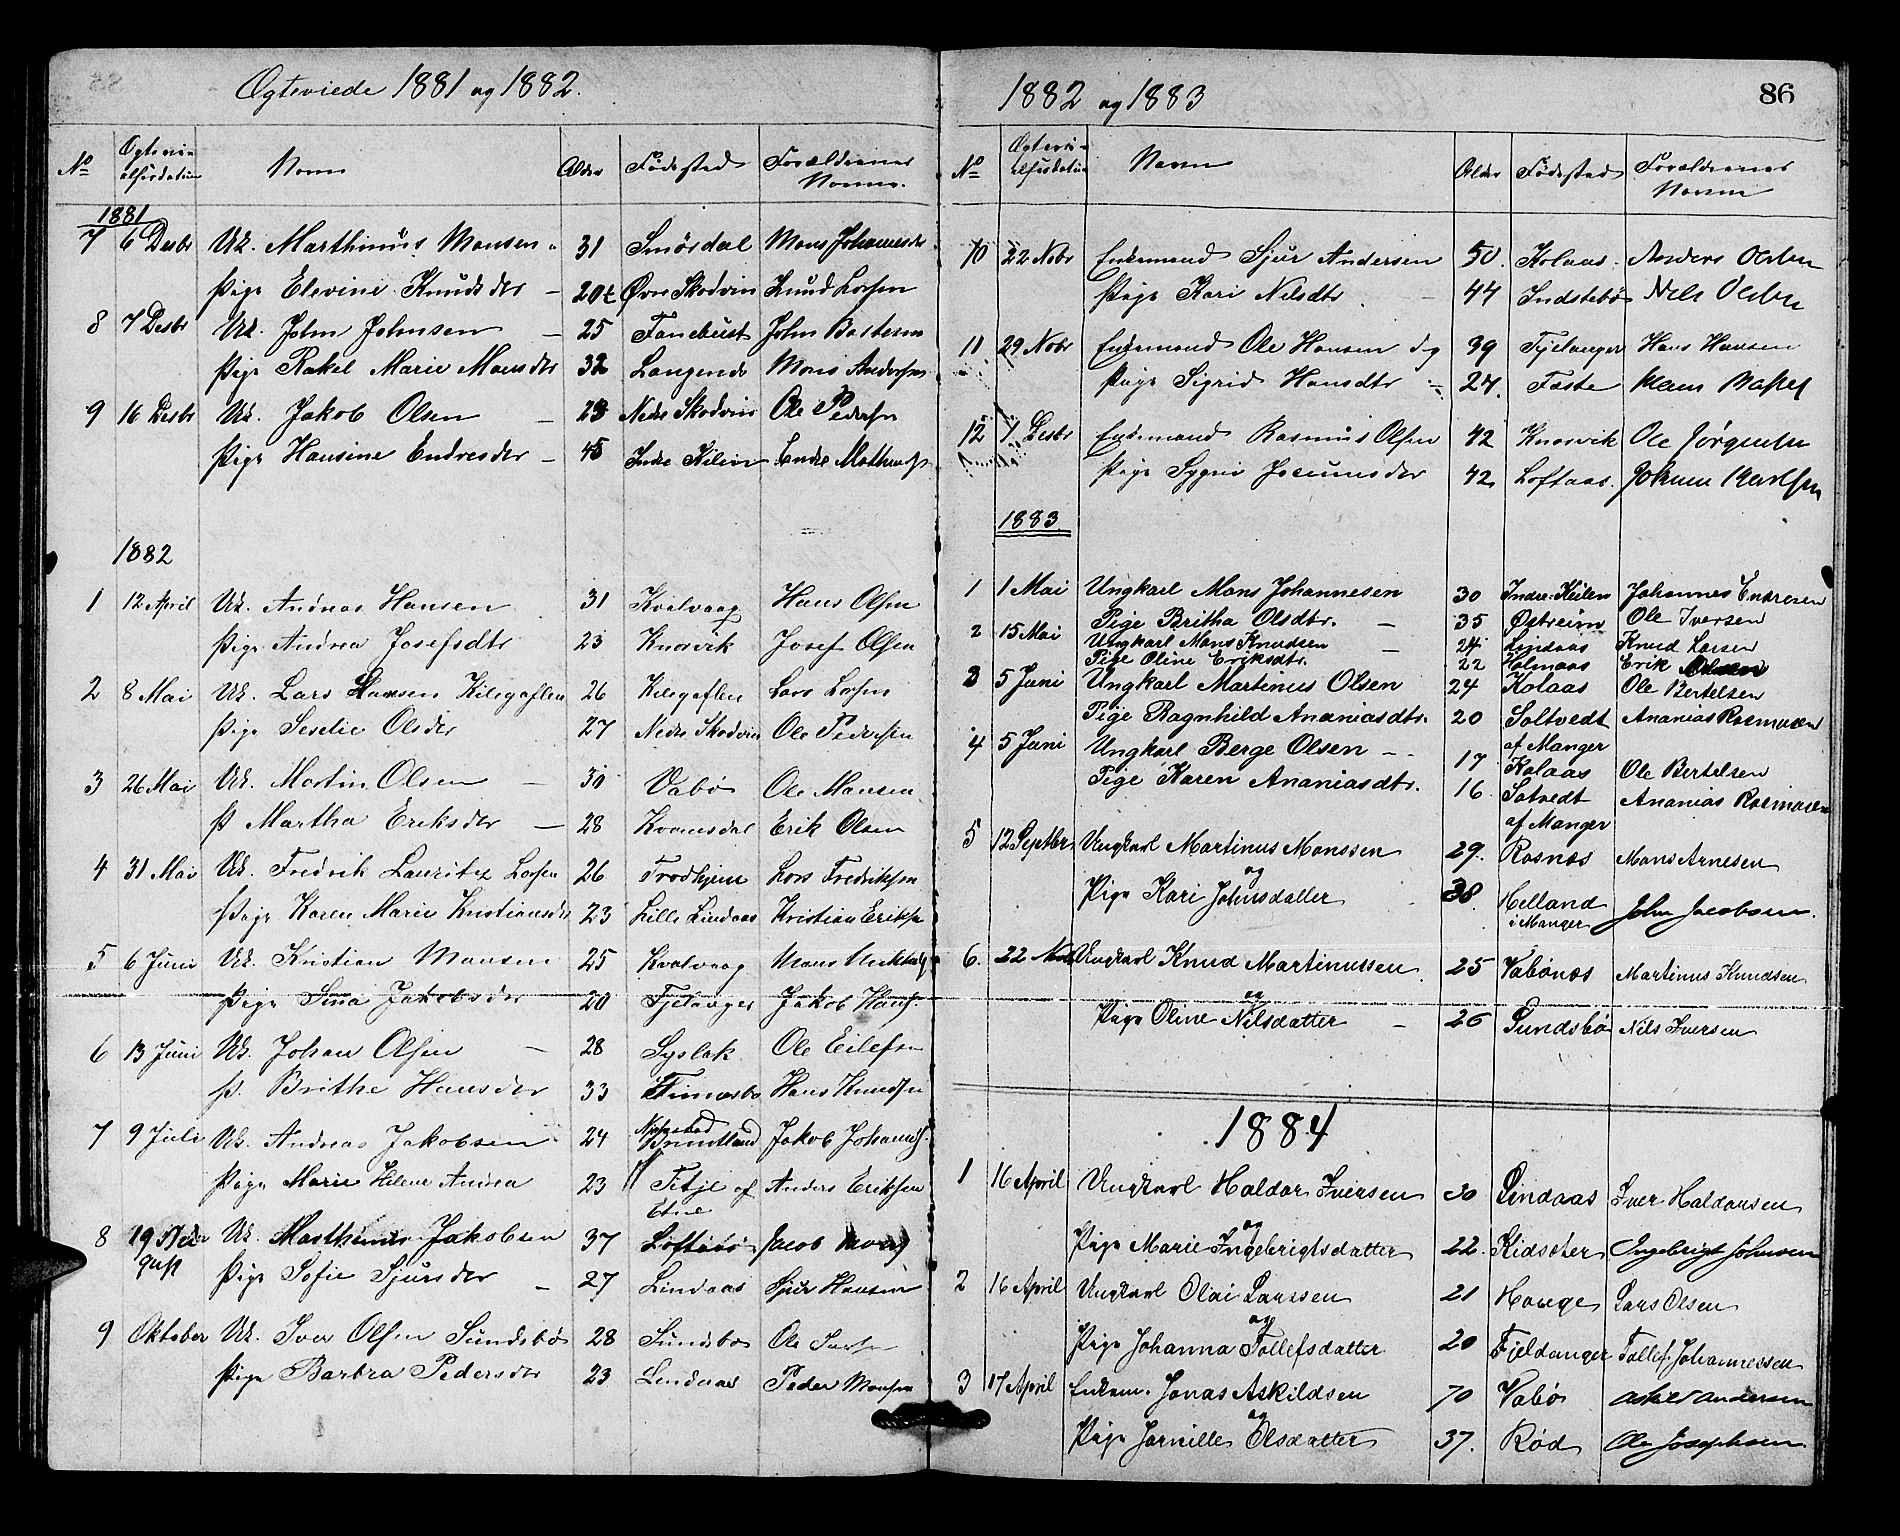 Ægteviede 1881 og 1882.
No Ægtevi- Navn Alder Fødested Forældrenes
elsesdatum Navne.
1881
7 6 Desbr Uk. Marthinus Monsen 31 Smørdal Mons Johannesen
Pige Elevine Knudsdtr 20 Øvre Skodvin Knud Larsen
8 7 Desbr Uk. John Johnsen 25 Fanebust John
Pige Rakel Marie Monsdtr 32 Mons Andersen
9 16 Desbr Uk. Jakob Olsen Nedre Skodvin Ole Pedersen
Pige Hansine Endresdtr 45 Indre Kilen Endre
1882
1 12 April Uk. Andreas Hansen 31 Kvalvaag Hans Olsen
Pige Andrea Josefsdtr 23 Knarvik Josef Olsen
2 8 Mai Uk. Lars Hansen 26 Lars Larsen
Pige Seselie Olsdtr 27 Nedre Skodvin Ole Pedersen
3 26 Mai Uk. Martin Olsen 30 Vabø Ole Monsen
P Martha Eriksdtr 28 Kvamsdal Erik Olsen
4 31 Mai Uk. Fredrik Lauritz Larsen 26 Trodhjem Lars Fredriksen
Pige Karen Marie Kristiansdtr 23 Lille Lindaas Kristian Eriksen
5 6 Juni Uk. Kristian Monsen 25 Kvalvaag Mons
Pige Sina Jakobsdtr 20 Fjelanger Jakob Hans.
6 13 Juni Uk. Johan Olsen 28 Syslak Ole Eilefsen
P. Brithe Hansdtr 33 Hans Knudsen
7 9 Juli Uk. Andreas Jakobsen 24 Bruntland Jakob Johannes.
Pige Marie Helene Andrea 23 Fitje af Anders Eriksen
Etne
8 19 Uk. Marthinus Jakobsen 37 Jacob
Pige Sofie Sjursdtr 27 Lindaas Sjur Hansen
9 Oktober Uk. Iver Olsen Sundsbø 28 Sundsbø Ole
Pige Barbra Pedersdtr 23 Lindaas Peder Monsen
1882 og 1883
86
No Ægtevi- Navn Alder Fødested Forældrenes
elsesdatum Navne
10 22 Nobr Enkemand Sjur Andersen 50. Kolaas. Anders Olsen
Pige Kari Nilsdtr 44 Indstebø Nels Olsen
11 29 Nobr Enkemand Ole Hansen og 39 Fjelanger Hans Hansen
Pige Sigrid Hansdtr 24. Faste Hans
12 1 Desbr Enkemand Rasmus Olsen 42 Knarvik Ole Jørgensen
Pige Sygni 42 Loftaas. Johan Karlsen
1883
1 1 Mai Ungkarl Mons Johannesen 30 Indre: Keilen Johannes Endresen
Pige Britha Olsdtr. 35 Østreim Ole Iversen
2 15 Mai Ungkarl Mons Knudsen 24 Lindaas Knud Larsen
Pige Oline Eriksdtr. 22 Holmaas Erik
3 5 Juni Ungkarl Martinus Olsen 24 Kolaas Ole Bertelsen
Pige Ragnhild Ananiasdtr. 20 Soltvedt Ananias Rasmusen
af Manger
4 5 Juni Ungkarl Berge Olsen 17 Kolaas Ole Bertelsen
Pige Karen Ananiasdtr. 16 Sotvedt Ananias Rasmusen
af Manger
5 12 Septbr Ungkarl Martinus Monssen 29. Rosnæs Mons Arnesen
og
Pige Kari Johnsdatter 38 Helland John Jacobsen.
i Manger
6. 22 Nov Ungkarl Knud Martinussen 25 Vabønæs Martinus Knudsen
og
Pige Oline Nilsdatter 26 Sundsbø Nils Iversen
1884
1 16 April Ungkarl Haldor Iversen 30 Lindaas Iver Haldorsen
og
Pige Marie Ingebrigtsdatter 22. Kidsæter Ingebrigt Johnsen
2 16 April Ungkarl Olai Larssen 21 Hauge Lars Olsen
og
Pige Johanna Tollefsdatter 20 Fjeldanger Tollef Johannessen
3 17 April Enkem. Jonas Askildsen 70 Vabø Askild Andersen
og
Pige Jornille Olsdatter 37. Rød Ole Josephsen.